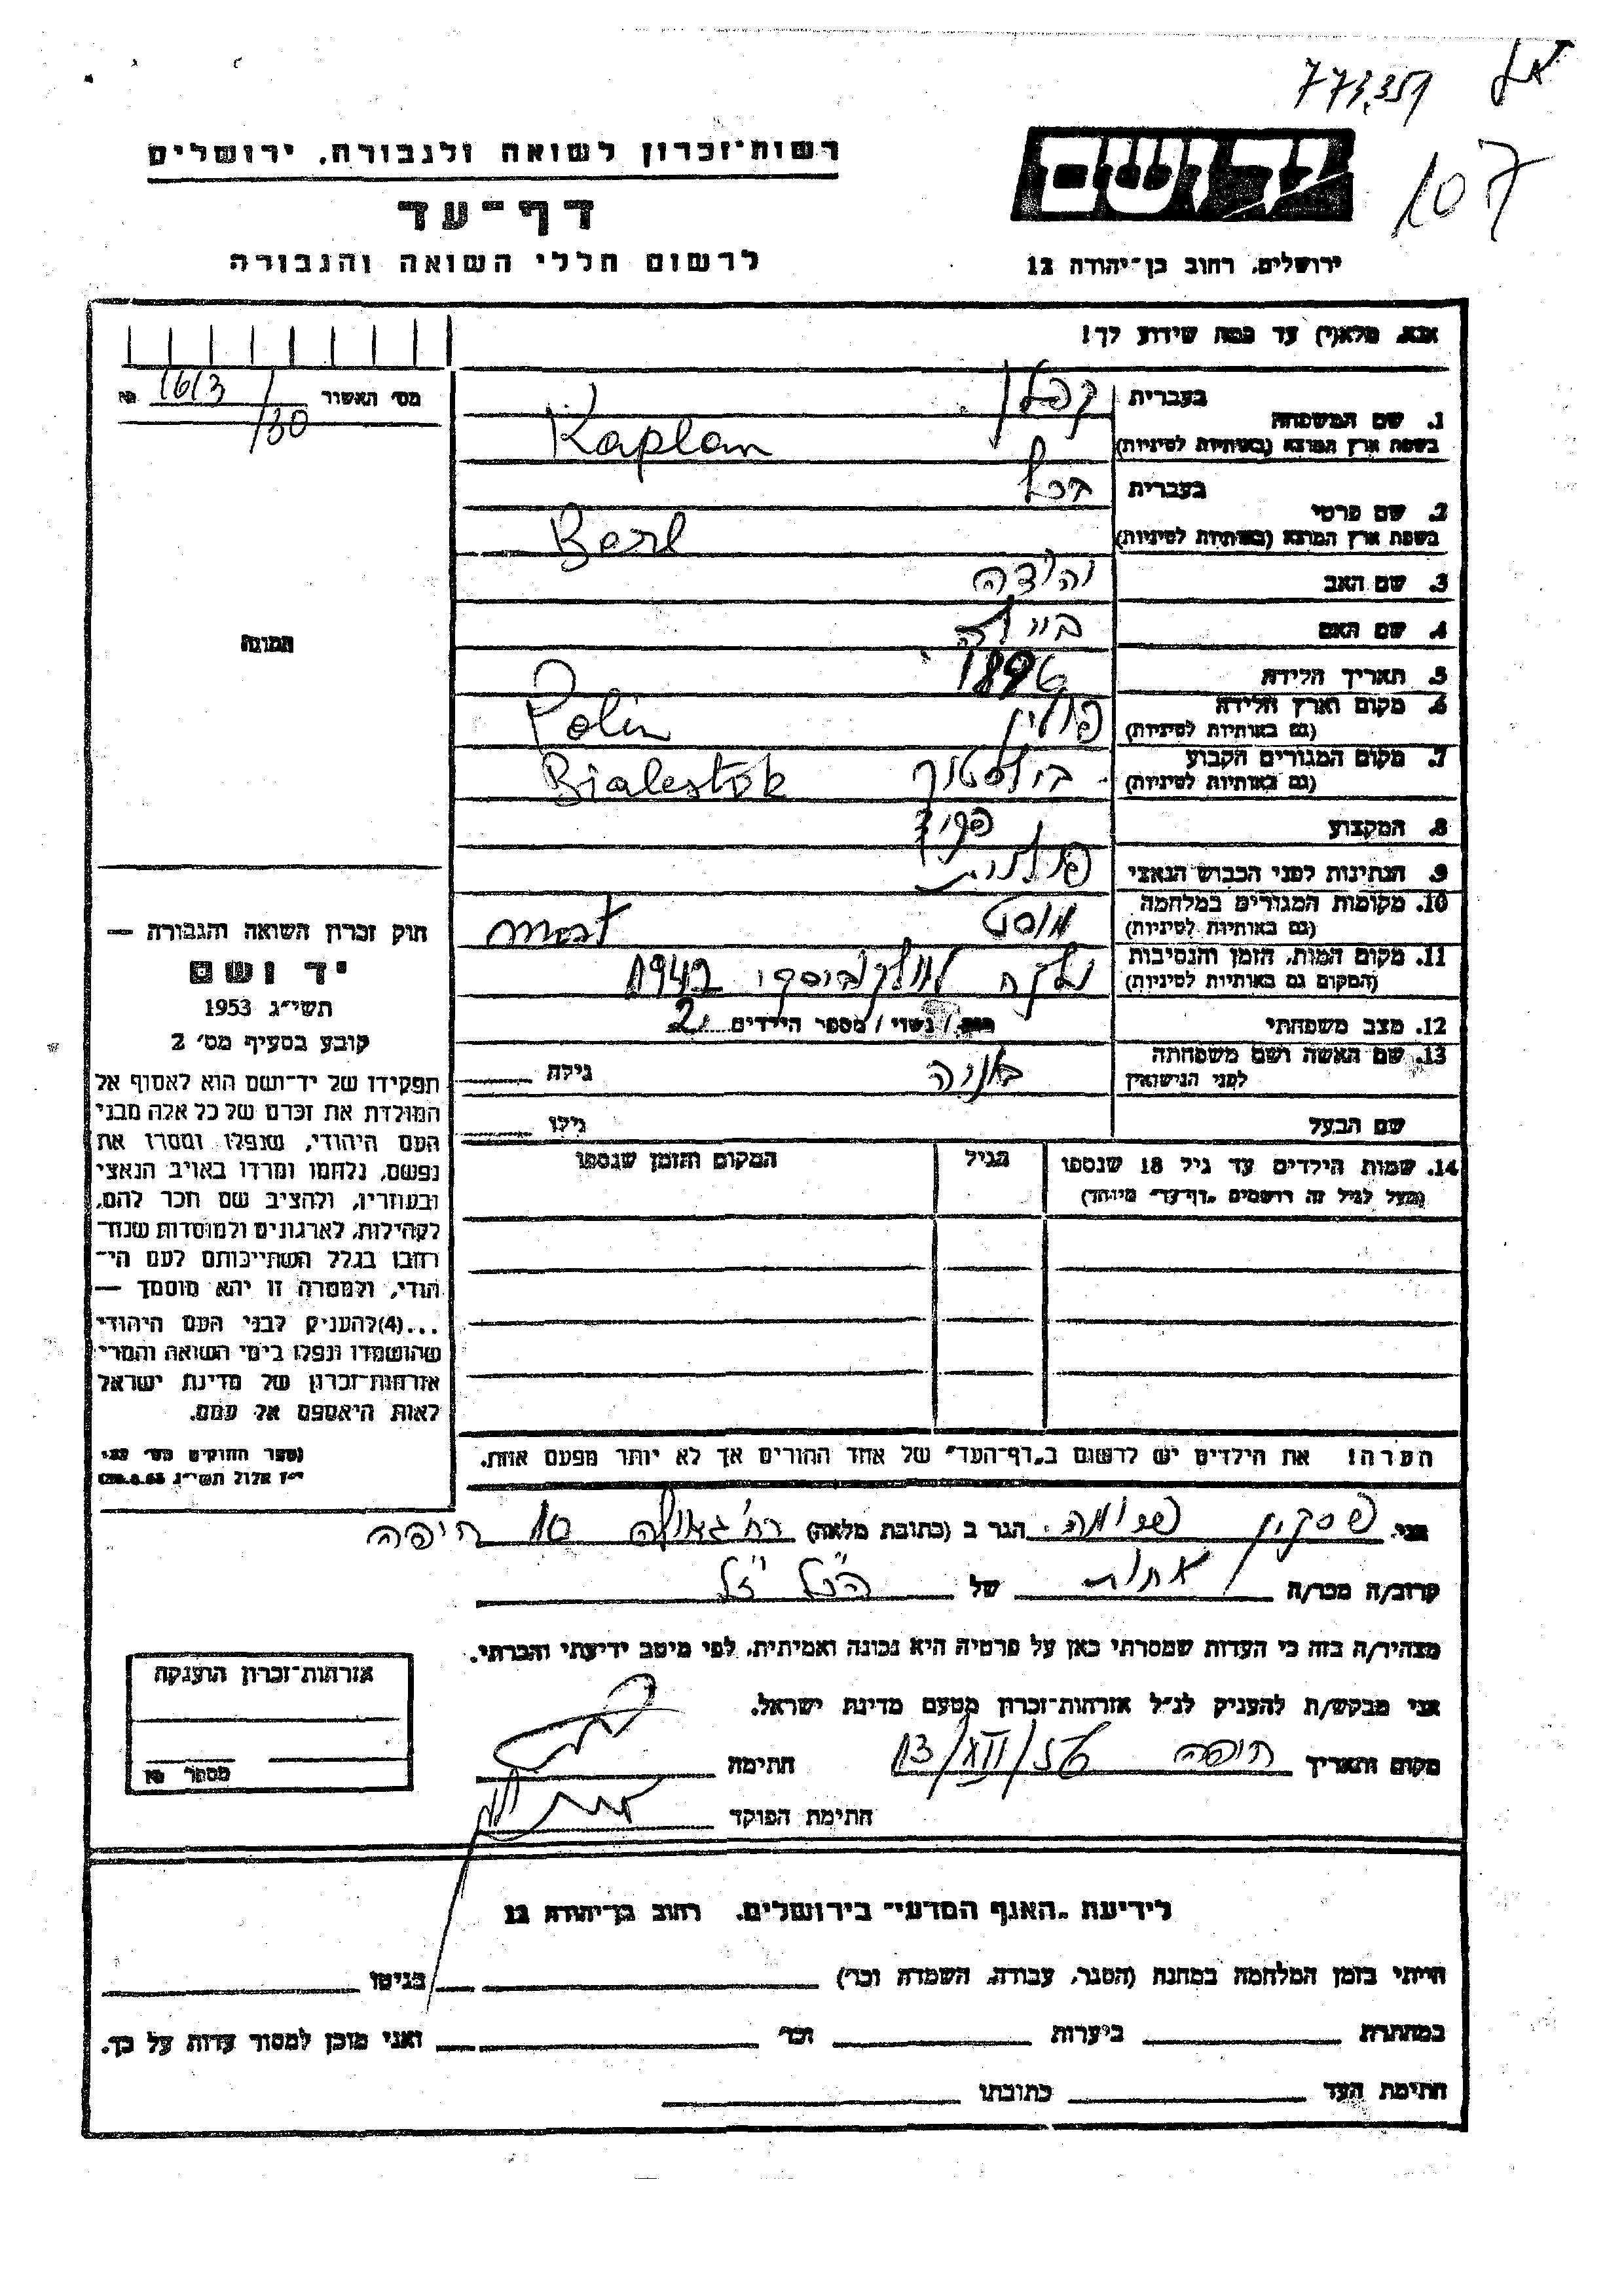 773,351
רשות-זכרון לשואה ולגבורה, ירושלים
דף-עד
לרשום חללי השואה והגבורה
יד ושם
107
ירושלים, רחוב בן-יהודה 12
אנא, מלא(י) עד כמה שידוע לך!
מס' האשור 1613/130
1. שם המשפחה בעברית קפלן
בשפת ארץ המוצא (באותיות לטיניות) Kaplan
2. שם פרטי בעברית ברל
בשפת ארץ המוצא (באותיות לטיניות) Berl
3. שם האב יהודה
4. שם האם ביילה
5. תאריך הלידה 1896
6. מקום וארץ הלידה (גם באותיות לטיניות) פולין Polin
7. מקום המגורים הקבוע (גם באותיות לטיניות) ביולסטוק Bialestok
8. המקצוע פקיד
9. הנתינות לפני הכבוש הנאצי פולנית
10. מקומות המגורים במלחמה (גם באותיות לטיניות) מוסט most
11. מקום המות, הזמן והנסיבות (המקום גם באותיות לטיניות) 1942
12. מצב משפחתי רווק / נשוי / מספר הילדים 2
13. שם האשה ושם משפחתה לפני הנישואין גילה
שם הבעל גילו
14. שמות הילדים עד גיל 18 שנספו (מעל לגיל זה רושמים "דף-עד" מיוחד)
הגיל
המקום והזמן שנספו
הערה! את הילדים יש לרשום ב"דף-העד" של אחד ההורים אך לא יותר מפעם אחת.
תמונה
חוק זכרון השואה והגבורה —
יד ושם
תשי"ג 1953
קובע בסעיף מס' 2
תפקידו של יד-ושם הוא לאסוף אל
המולדת את זכרם של כל אלה מבני
העם היהודי, שנפלו ומסרו את
נפשם, נלחמו ומרדו באויב הנאצי
ובעוזריו, ולהציב שם וזכר להם,
לקהילות, לארגונים ולמוסדות שנח-
רבו בגלל השתייכותם לעם הי-
הודי, ולמטרה זו יהא מוסמך —
...(4)להעניק לבני העם היהודי
שהושמדו ונפלו בימי השואה והמרי
אזרחות-זכרון של מדינת ישראל
לאות היאספם אל עמם.
(ספר החוקים מס' 132,
י"ז אלול תשי"ג 28.8.53)
אני, פסקין הגר ב (כתובת מלאה) רח' גאולה 10 חיפה
קרוב/ה מכר/ה אחות של הנ"ל ז"ל
מצהיר/ה בזה כי העדות שמסרתי כאן על פרטיה היא נכונה ואמיתית, לפי מיטב ידיעתי והכרתי.
אני מבקש/ת להעניק לנ"ל אזרחות-זכרון מטעם מדינת ישראל.
מקום ותאריך חיפה 13/XII/56 חתימה
חתימת הפוקד
אזרחות-זכרון הוענקה
מספר
לידיעת "האגף המדעי" בירושלים, רחוב בן-יהודה 12
הייתי בזמן המלחמה במחנה (הסגר, עבודה, השמדה וכו') בגיטו
במחתרת ביערות וכו' ואני מוכן למסור עדות על כך.
חתימת העד כתובתו